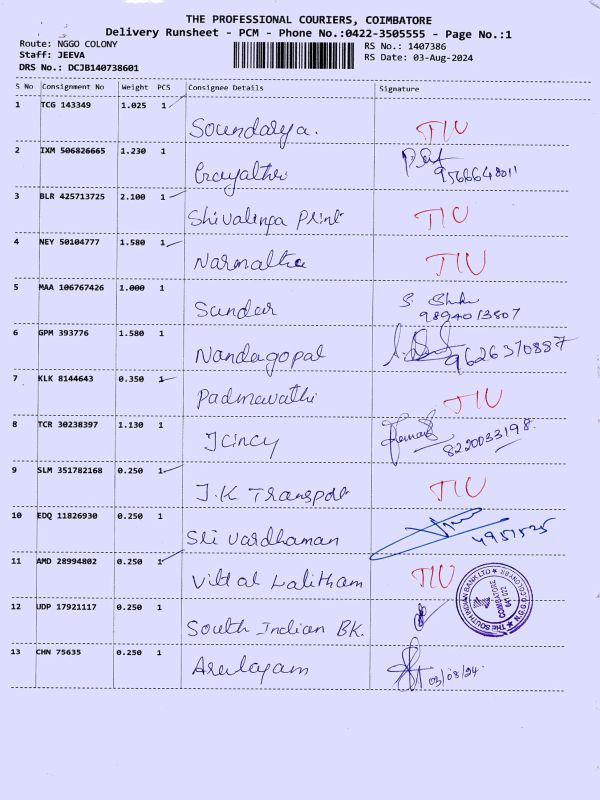 THE PROFESSIONAL COURIERS, COIMBATORE
Delivery Runsheet - PCM - Phone No.:0422-3505555 - Page No.:1
Route: NGGO COLONY
Staff: JEEVA
DRS No.: DCJB140738601
RS No.: 1407386
RS Date: 03-Aug-2024
S No Consignment No Weight PCS Consignee Details Signature
1 TCG 143349 1.025 1 Soundarya. TIU
2 IXM 506826665 1.230 1 Gayathri 9566648011
3 BLR 425713725 2.100 1 Shivalinga Print TIU
4 NEY 50104777 1.580 1 Narmatha TIU
5 MAA 106767426 1.000 1 Sundar
9894013807
6 GPM 393776 1.580 1 Nandagopal 9626370887
7 KLK 8144643 0.350 1 Padmavathi TIU
8 TCR 30238397 1.130 1 Jcincy 8220033198.
9 SLM 351782168 0.250 1 J.K Transport TIU
10 EDQ 11826930 0.250 1 Sri Vardhaman
11 AMD 28994802 0.250 1 Lalitham TIU
12 UDP 17921117 0.250 1 South Indian BK.
THE SOUTH INDIAN BANK LTD
COIMBATORE
13 CHN 75635 0.250 1 03/08/24